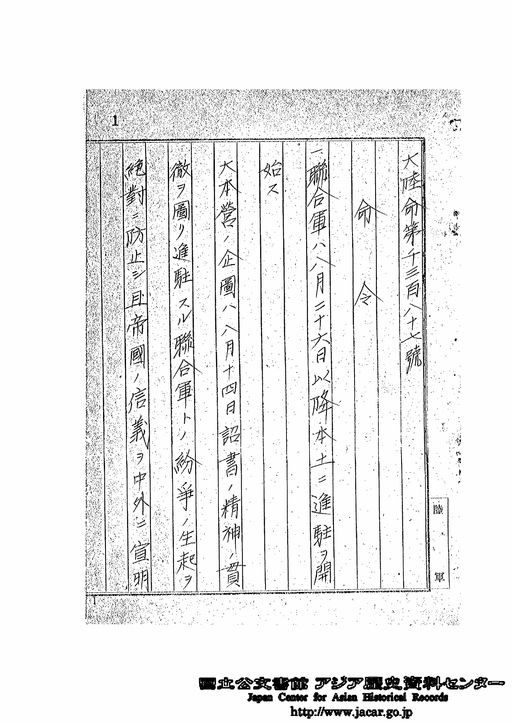 1
大陸命第千三百八十七號
命令
一聯合軍ハ八月二十六日以降本土ニ進駐ヲ開
始ス
大本營ノ企圖ハ八月十四日詔書ノ精神ノ貫
徹ヲ圖リ進駐スル聯合軍トノ紛爭ノ生起ヲ
絕對ニ防止シ且帝國ノ信義ヲ中外ニ宣明
陸軍
1
國立公文書館 アジア歴史資料センター
Japan Center for Asian Historical Records
http://www.jacar.go.jp